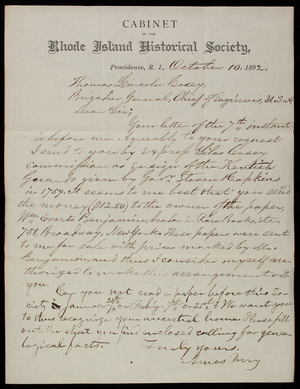 CABINET
OF THE
Rhode Island Historical Society,
Providence, R. I., October 10. 1892.
Thomas Lincoln Casey,
Brigadier General, Chief of Engineers, U.S.A
Dear Sir;
Your letter of the 7th instant
is before me. Agreeably to your request
I send to you by Express Silas Casey
commission as Ensign of the Kentish
Guards given by Gov. Stephen Hopkins
in 1759. It seems to me best that you send
the money ($12.50) to the owner of the paper,
Wm Evarts Benjamin, dealer in Rare Books, etc.
751, Broadway, New York. These papers were sent
to me for sale with prices marked by Mr.
Benjamin, and thus I consider myself au-
thorized to make this arrangement with
you.
Can you not read a paper before this So-
ciety January 24th or Feb'y. 7th or 21st? We want you
to thus recognize your ancestral home. Please fill
out the sheet you find inclosed calling for genea-
logical facts.
Truly yours,
Amos Perry